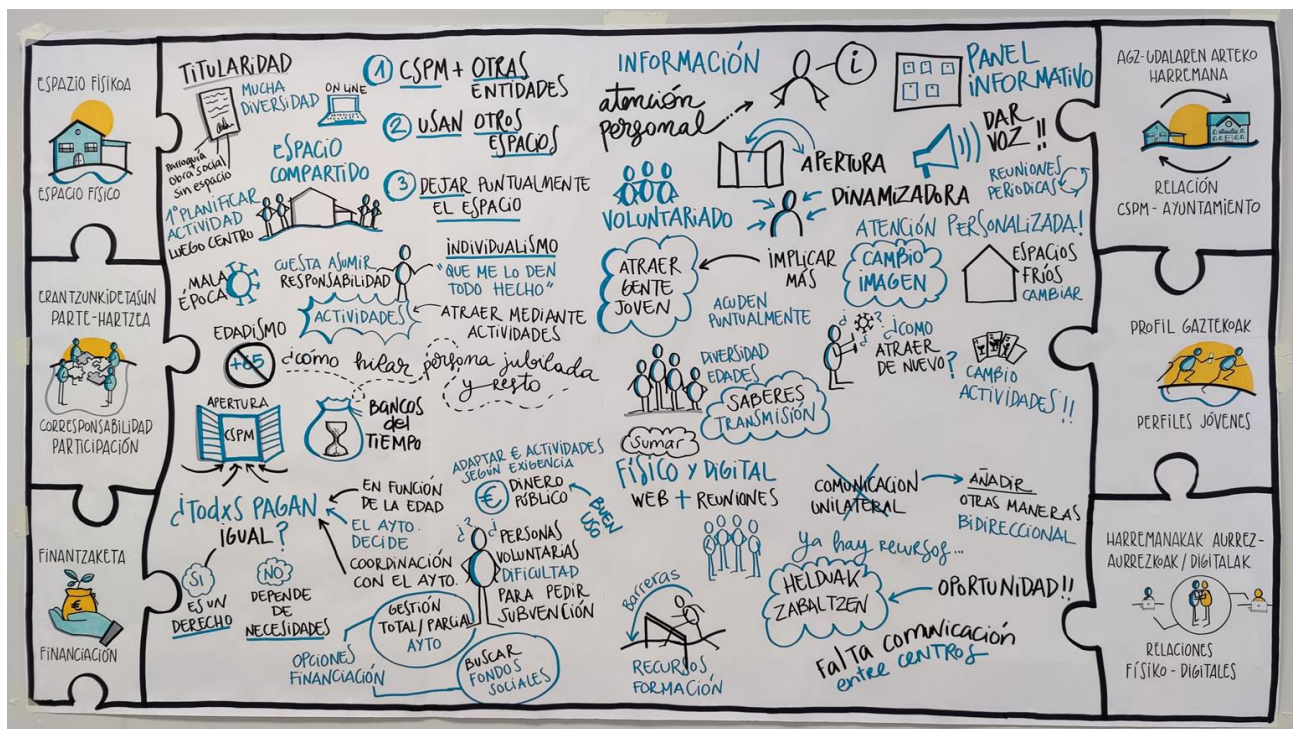 ESPAZIO FÍSIKOA
ESPACIO FÍSICO
ERANTZUNKIDETASUN
PARTE-HARTZEA
CORRESPONSABILIDAD
PARTICIPACIÓN
FINANTZAKETA
€
FINANCIACIÓN
TITULARIDAD
MUCHA
DIVERSIDAD
ON LINE
Parroquia
obra social
sin espacio
ESPACIO
COMPARTIDO
1º PLANIFICAR
ACTIVIDAD
LUEGO CENTRO
1 CSPM + OTRAS
ENTIDADES
2 USAN OTROS
ESPACIOS
3 DEJAR PUNTUALMENTE
EL ESPACIO
MALA
ÉPOCA
CUESTA ASUMIR
RESPONSABILIDAD
INDIVIDUALISMO
"QUE ME LO DEN
TODO HECHO"
ACTIVIDADES
ATRAER MEDIANTE
ACTIVIDADES
EDADISMO
+65
¿cómo hilar persona jubilada
y resto
APERTURA
CSPM
BANCOS
del
TIEMPO
¿TodxS PAGAN
IGUAL?
SI
ES UN
DERECHO
NO
DEPENDE
DE
NECESIDADES
EN FUNCIÓN
DE LA EDAD
EL AYTO.
DECIDE
COORDINACIÓN
CON EL AYTO.
ADAPTAR € ACTIVIDADES
SEGÚN EXIGENCIA
€ DINERO
PÚBLICO
BUEN
USO
¿?
PERSONAS
VOLUNTARIAS
DIFICULTAD
PARA PEDIR
SUBVENCIÓN
GESTIÓN
TOTAL/PARCIAL
AYTO
OPCIONES
FINANCIACIÓN
BUSCAR
FONDOS
SOCIALES
INFORMACIÓN
atención
personal
i
PANEL
INFORMATIVO
APERTURA
DAR
VOZ!!
REUNIONES
PERIODICAS
VOLUNTARIADO
DINAMIZADORA
ATENCIÓN PERSONALIZADA!
ATRAER
GENTE
JOVEN
IMPLICAR
MÁS
CAMBIO
IMAGEN
ESPACIOS
FRÍOS
CAMBIAR
ACUDEN
PUNTUALMENTE
¿?
¿COMO
ATRAER
DE NUEVO?
CAMBIO
ACTIVIDADES!!
DIVERSIDAD
EDADES
SABERES
TRANSMISIÓN
Sumar
FÍSICO Y DIGITAL
WEB + REUNIONES
COMUNICACION
UNILATERAL
AÑADIR
OTRAS MANERAS
BIDIRECCIONAL
Ya hay recursos...
HELDUAK
ZABALTZEN
OPORTUNIDAD!!
Barreras
RECURSOS
FORMACIÓN
FALTA COMUNICACIÓN
entre CENTROS
AGZ-UDALAREN ARTEKO
HARREMANA
RELACIÓN
CSPM - AYUNTAMIENTO
PROFIL GAZTEKOAK
PERFILES JÓVENES
HARREMANAKAK AURREZ-
AURREZKOAK / DIGITALAK
RELACIONES
FÍSIKO - DIGITALES